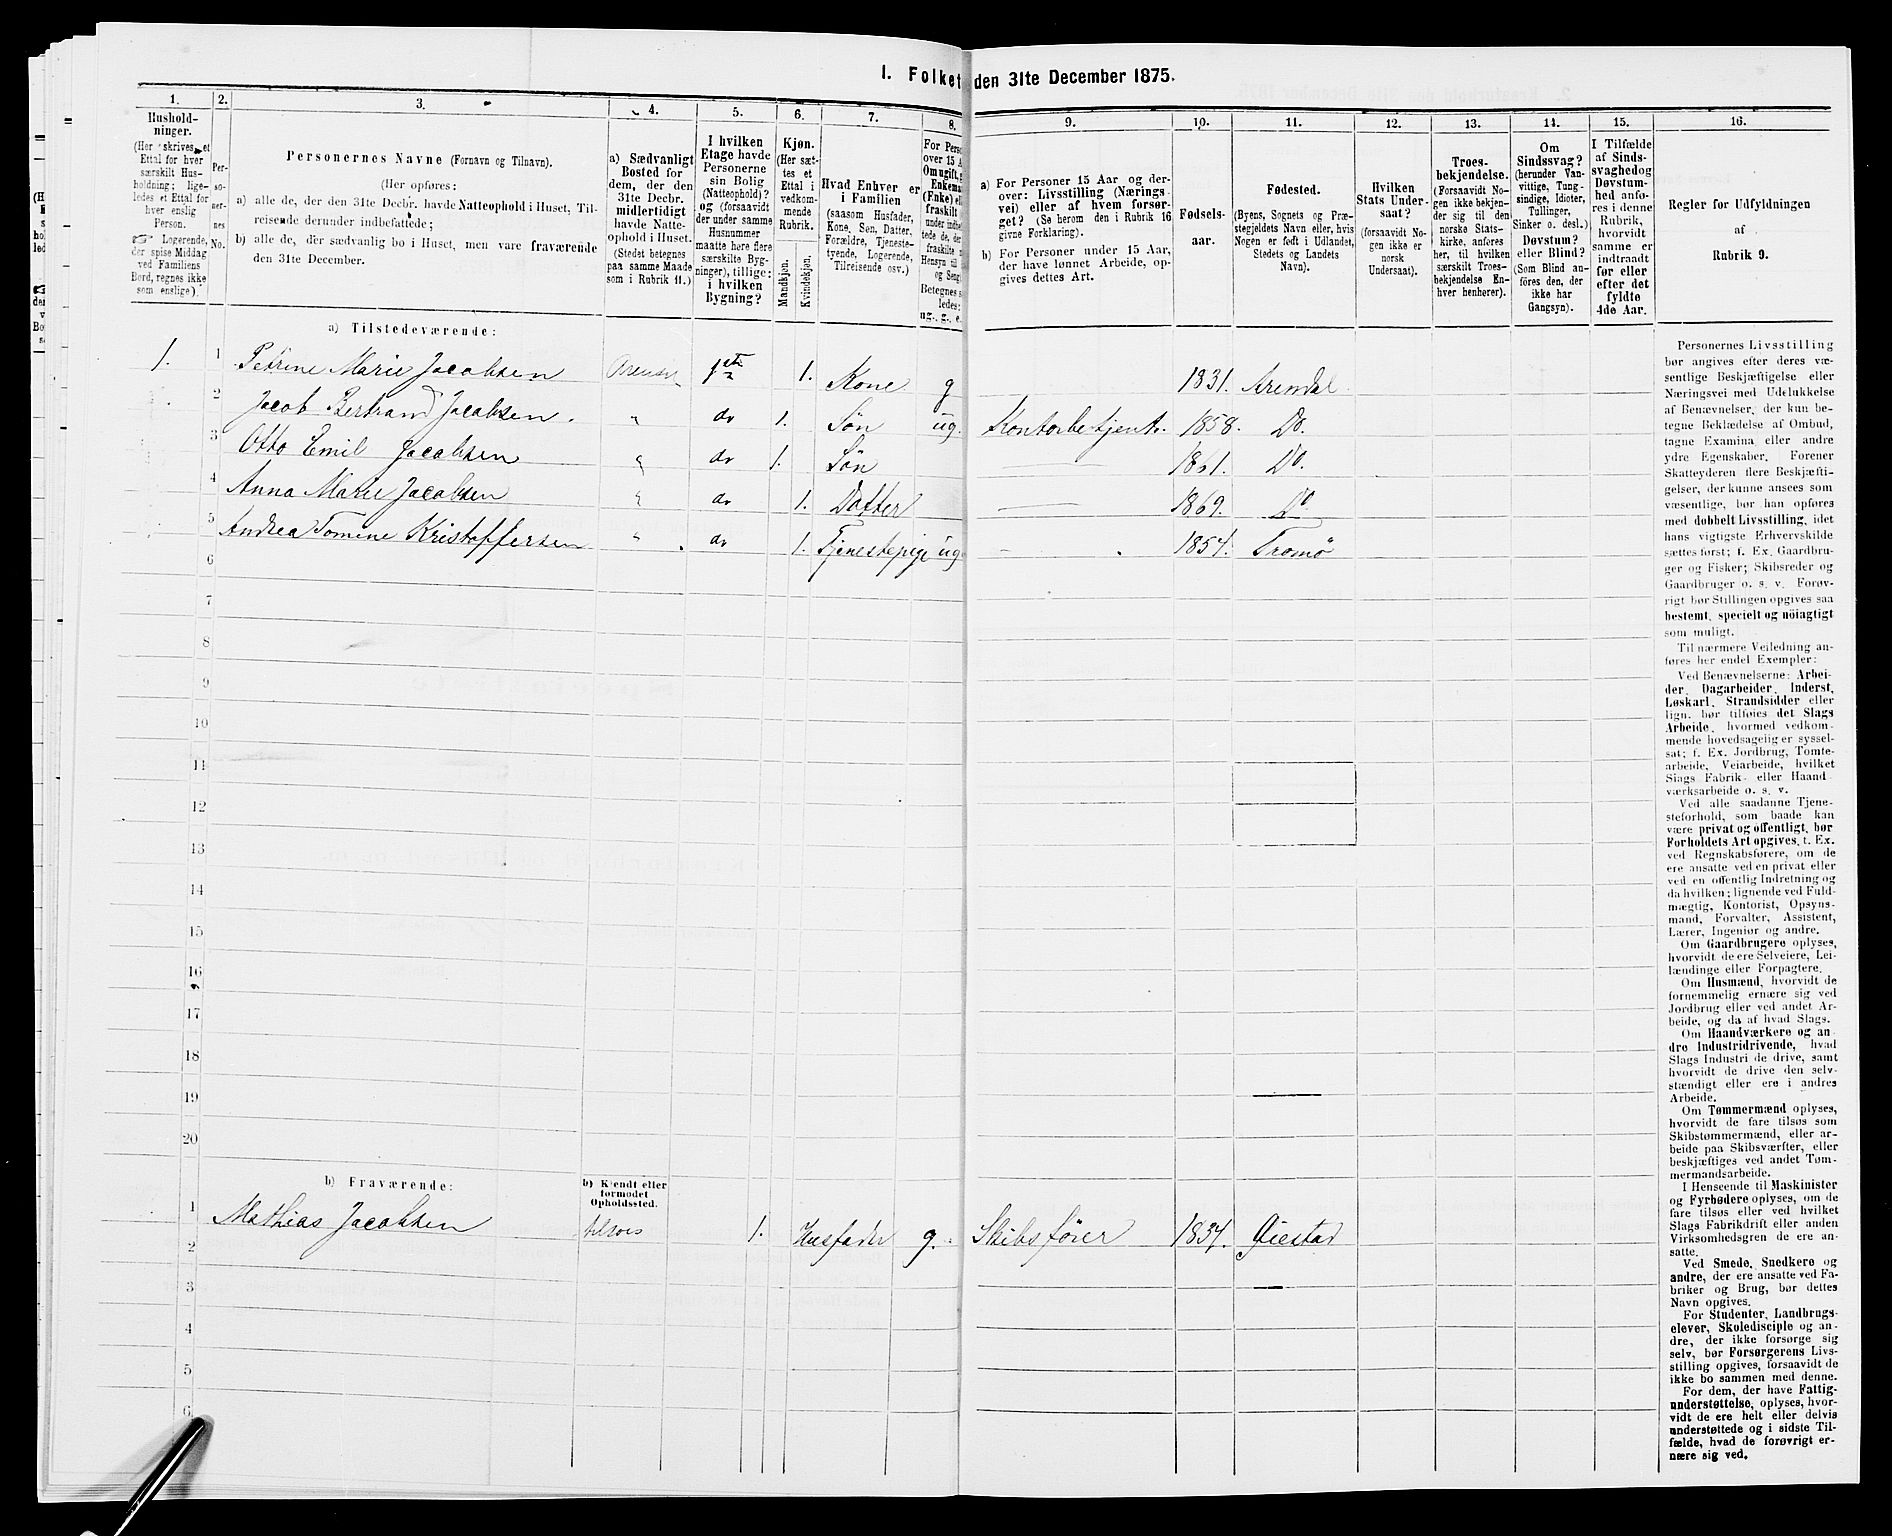 I. Folket den 31te December 1875.
1.
Hushold-
ninger.
(Her skrives et
Ettal for hver
særskilt Hus-
holdning; lige-
ledes et Ettal for
hver enslig
Person.
Logerende,
der spise Middag
ved Familiens
Bord, regnes ikke
som enslige).
2.
Per-
so-
ner-
nes
No.
3.
Personernes Navne (Fornavn og Tilnavn).
(Her opføres:
a) alle de, der den 31te Decbr. havde Natteophold i Huset, Til-
reisende derunder indbefattede;
b) alle de, der sædvanlig bo i Huset, men vare fraværende
den 31te December.
4.
a) Sædvanligt
Bosted for
dem, der den
31te Decbr.
midlertidigt
havde Natte-
ophold i Huset.
(Stedet betegnes
paa samme Maade
som i Rubrik 11.)
5.
I hvilken
Etage havde
Personerne
sin Bolig
(Natteophold)?
og (forsaavidt
der under samme
Husnummer
maatte høre flere
særskilte Byg-
ninger), tillige:
i hvilken
Bygning?
6.
Kjøn.
(Her sæt-
tes et
Ettal i
vedkom-
mende
Rubrik.
Mandkjøn.
Kvindekjøn.
7.
Hvad Enhver er
i Familien
(saasom Husfader,
Kone, Søn, Datter,
Forældre, Tjeneste-
tyende, Logerende,
Tilreisende osv.)
8.
For Pers
over 15 A
Om ugift, g
Enkema
(Enke) ell
fraskilt
under indbe
tede de, der
fraskilte
Hensyn til
og Seng
Betegnes s
ledes:
ug., g., e.
9.
a) For Personer 15 Aar og der-
over: Livsstilling (Nærings-
vei) eller af hvem forsør-
get? (Se herom den i Rubrik 16
givne Forklaring).
b) For Personer under 15 Aar,
der have lønnet Arbeide, op-
gives dettes Art.
10.
Fødsels-
aar.
11.
Fødested.
(Byens, Sognets og Præ-
stegjeldets Navn eller, hvis
Nogen er født i Udlandet,
Stedets og Landets
Navn).
12.
Hvilken
Stats Under-
saat?
(forsaavidt No-
gen ikke er
norsk
Undersaat).
13.
Troes-
bekjendelse.
(Forsaavidt No-
gen ikke bekjen-
der sig til den
norske Stats-
kirke, anføres
her, til hvilken
særskilt Troes-
bekjendelse En-
hver henhører).
14.
Om
Sindssvag?
(herunder Van-
vittige, Tung-
sindige, Idioter,
Tullinger,
Sinker o. desl.)
Døvstum?
eller Blind?
(Som Blind an-
føres den, der
ikke har
Gangsyn).
15.
I Tilfælde
af Sinds-
svaghed og
Døvstum-
hed anfø-
res i denne
Rubrik,
hvorvidt
samme er
indtraadt
før eller
efter det
fyldte
4de Aar.
16.
Regler for Udfyldningen
af
Rubrik 9.
a) Tilstedeværende:
1. 1 Petrine Marie Jacobsen Arendal 1ste 1. Kone g 1831. Arendal
2 Jacob Bertrand Jacobsen. " do 1. Søn ug. Kontorbetjent. 1858. Do.
3 Otto Emil Jacobsen " do 1. Søn 1861. Do.
4 Anna Marie Jacobsen " do 1. Datter 1869. Do
5 Andrea Tomine Kristoffersen " do 1. Tjenestepige ug 1854. Tromø
6
7
8
9
10
11
12
13
14
15
16
17
18
19
20
b) Fraværende:
b) Kjendt eller
formodet
Opholdssted.
1 Mathias Jacobsen tilsøes 1. Husfader g. Skibsfører 1834. Øiestad
2
3
4
5
6
Personernes Livsstilling
bør angives efter deres væ-
sentlige Beskjæftigelse eller
Næringsvei med Udelukkelse
af Benævnelser, der kun be-
tegne Beklædelse af Ombud,
tagne Examina eller andre
ydre Egenskaber. Forener
Skatteyderen flere Beskjæfti-
gelser, der kunne ansees som
væsentlige, bør han opføres
med dobbelt Livsstilling, idet
hans vigtigste Erhvervskilde
sættes først; f. Ex. Gaardbru-
ger og Fisker; Skibsreder og
Gaardbruger o. s. v. Forøv-
rigt bør Stillingen opgives saa
bestemt, specielt og nöiagtigt
som muligt.
Til nærmere Veiledning an-
føres her endel Exempler:
Ved Benævnelserne: Arbei-
der, Dagarbeider, Inderst,
Løskarl, Strandsidder eller
lign. bør tilføies det Slags
Arbeide, hvormed vedkom-
mende hovedsagelig er syssel-
sat; f. Ex. Jordbrug, Tomte-
arbeide, Veiarbeide, hvilket
Slags Fabrik- eller Haand-
værksarbeide o. s. v.
Ved alle saadanne Tjene-
steforhold, som baade kan
være privat og offentligt, bør
Forholdets Art opgives, f. Ex.
ved Regnskabsførere, om de
ere ansatte ved en privat eller
ved en offentlig Indretning og
da hvilken; lignende ved Fuld-
mægtig, Kontorist, Opsyns-
mand, Forvalter, Assistent,
Lærer, Ingeniør og andre.
Om Gaardbrugere oplyses,
hvorvidt de ere Selveiere, Lei-
lændinge eller Forpagtere.
Om Husmænd, hvorvidt de
fornemmelig ernære sig ved
Jordbrug eller ved andet Ar-
beide, og da af hvad Slags.
Om Haandværkere og an-
dre Industridrivende, hvad
Slags Industri de drive, samt
hvorvidt de drive den selv-
stændigt eller ere i andres
Arbeide.
Om Tømmermænd oplyses,
hvorvidt de fare tilsøs som
Skibstømmermænd, eller ar-
beide paa Skibsværfter, eller
beskjæftiges ved andet Tøm-
mermandsarbeide.
I Henseende til Maskinister
og Fyrbødere oplyses, om de
fare tilsøs eller ved hvilket
Slags Fabrikdrift eller anden
Virksomhedsgren de ere an-
satte.
Ved Smede, Snedkere og
andre, der ere ansatte ved Fa-
briker og Brug, bør dettes
Navn opgives.
For Studenter, Landbrugs-
elever, Skoledisciple og an-
dre, der ikke forsørge sig
selv, bør Forsørgerens Livs-
stilling opgives, forsaavidt de
ikke bo sammen med denne.
For dem, der have Fattig-
understøttelse, oplyses, hvor-
vidt de ere helt eller delvis
understøttede og i sidste Til-
fælde, hvad de forøvrigt er-
nære sig ved.